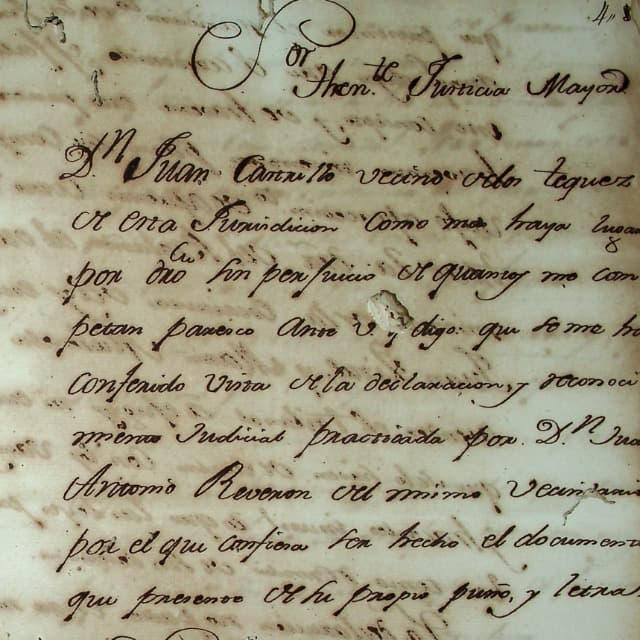 4,, 8
S.or
Then.te Justicia Mayor
D.n Juan Carrillo vecino de los teques
de esta Jurisdicion como mas haya lugar
por dro Su sin perjuicio de quantos me com
petan paresco ante V. y digo: que se me ha
Conferido Vista de la declaracion, y reconoci
miento Judicial practicada por D.n Juan
Antonio Reveron del mismo Vecindario
por el que confiesa ser hecho el documento
que presente de su propio puño, y letra